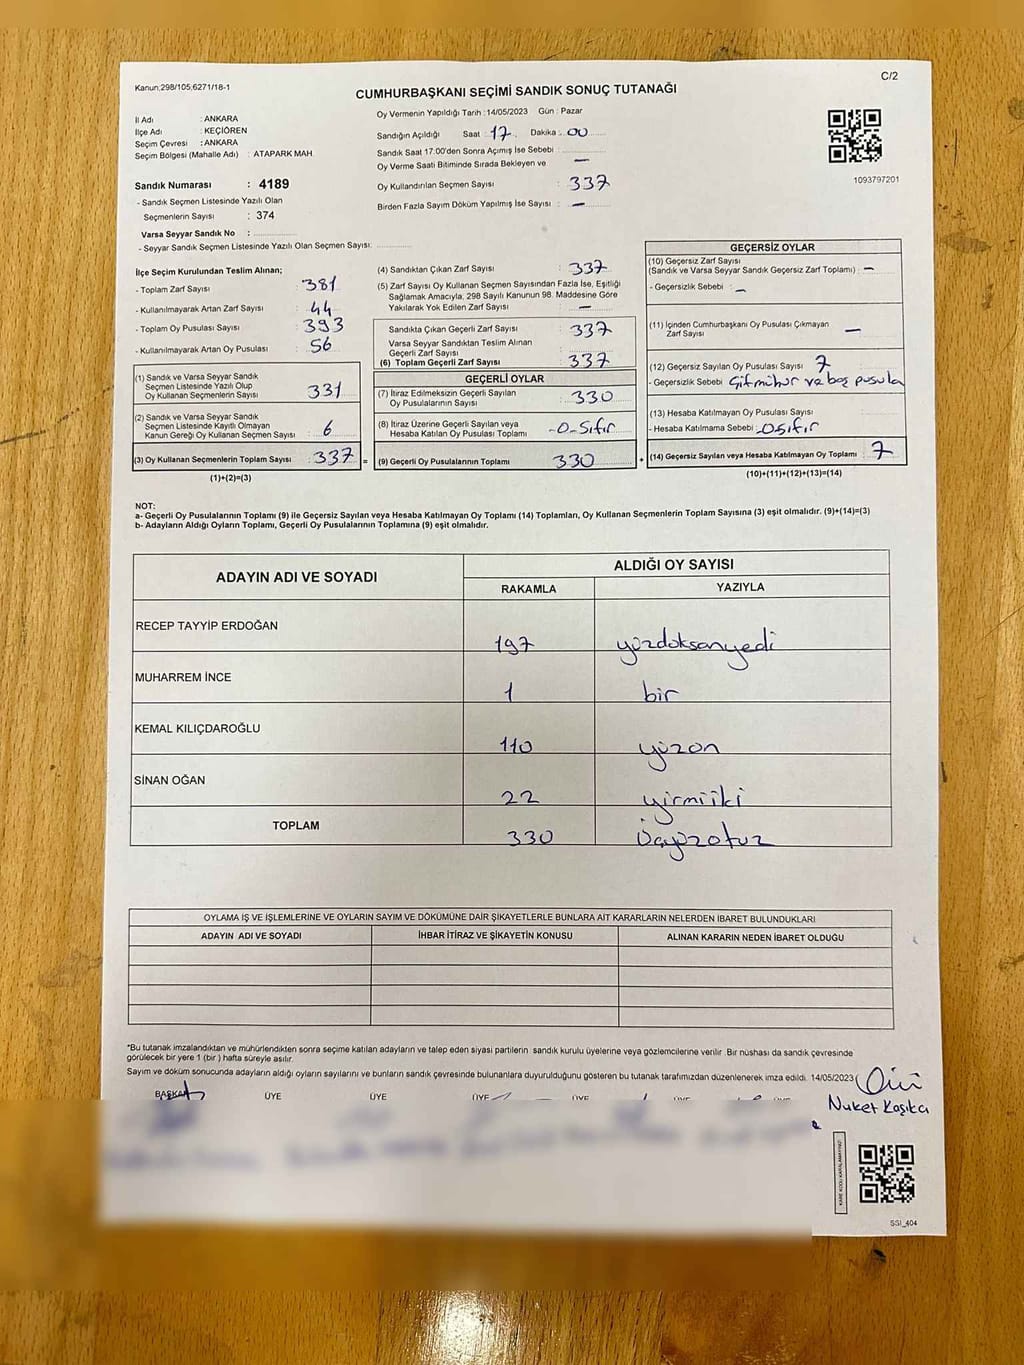 Kanun;298/105;6271/18-1
C/2
CUMHURBAŞKANI SEÇİMİ SANDIK SONUÇ TUTANAĞI
İl Adı : ANKARA
İlçe Adı : KEÇİÖREN
Seçim Çevresi : ANKARA
Seçim Bölgesi (Mahalle Adı) : ATAPARK MAH
Sandık Numarası : 4189
- Sandık Seçmen Listesinde Yazılı Olan
Seçmenlerin Sayısı : 374
Varsa Seyyar Sandık No :
- Seyyar Sandık Seçmen Listesinde Yazılı Olan Seçmen Sayısı:
Oy Vermenin Yapıldığı Tarih :14/05/2023 Gün : Pazar
Sandığın Açıldığı Saat : 17 Dakika : 00
Sandık Saat 17:00'den Sonra Açımış İse Sebebi :
Oy Verme Saati Bitiminde Sırada Bekleyen ve —
Oy Kullandırılan Seçmen Sayısı : 337
Birden Fazla Sayım Döküm Yapılmış İse Sayısı : —
1093797201
İlçe Seçim Kurulundan Teslim Alınan;
- Toplam Zarf Sayısı : 381
- Kullanılmayarak Artan Zarf Sayısı : 44
- Toplam Oy Pusulası Sayısı : 393
- Kullanılmayarak Artan Oy Pusulası : 56
(1) Sandık ve Varsa Seyyar Sandık
Seçmen Listesinde Yazılı Olup
Oy Kullanan Seçmenlerin Sayısı : 331
(2) Sandık ve Varsa Seyyar Sandık
Seçmen Listesinde Kayıtlı Olmayan
Kanun Gereği Oy Kullanan Seçmen Sayısı : 6
(3) Oy Kullanan Seçmenlerin Toplam Sayısı : 337 =
(1)+(2)=(3)
(4) Sandıktan Çıkan Zarf Sayısı : 337
(5) Zarf Sayısı Oy Kullanan Seçmen Sayısından Fazla İse, Eşitliği
Sağlamak Amacıyla, 298 Sayılı Kanunun 98. Maddesine Göre
Yakılarak Yok Edilen Zarf Sayısı : —
Sandıkta Çıkan Geçerli Zarf Sayısı : 337
Varsa Seyyar Sandıktan Teslim Alınan
Geçerli Zarf Sayısı :
(6) Toplam Geçerli Zarf Sayısı : 337
GEÇERLİ OYLAR
(7) İtiraz Edilmeksizin Geçerli Sayılan
Oy Pusulalarının Sayısı : 330
(8) İtiraz Üzerine Geçerli Sayılan veya
Hesaba Katılan Oy Pusulası Toplamı : -0-Sıfır
(9) Geçerli Oy Pusulalarının Toplamı : 330 +
GEÇERSİZ OYLAR
(10) Geçersiz Zarf Sayısı
(Sandık ve Varsa Seyyar Sandık Geçersiz Zarf Toplamı) : —
- Geçersizlik Sebebi : —
(11) İçinden Cumhurbaşkanı Oy Pusulası Çıkmayan
Zarf Sayısı : —
(12) Geçersiz Sayılan Oy Pusulası Sayısı : 7
- Geçersizlik Sebebi : Çiftmühür ve boş pusula
(13) Hesaba Katılmayan Oy Pusulası Sayısı :
- Hesaba Katılmama Sebebi : -0sıfır
(14) Geçersiz Sayılan veya Hesaba Katılmayan Oy Toplamı : 7
(10)+(11)+(12)+(13)=(14)
NOT:
a- Geçerli Oy Pusulalarının Toplamı (9) ile Geçersiz Sayılan veya Hesaba Katılmayan Oy Toplamı (14) Toplamları, Oy Kullanan Seçmenlerin Toplam Sayısına (3) eşit olmalıdır. (9)+(14)=(3)
b- Adayların Aldığı Oyların Toplamı, Geçerli Oy Pusulalarının Toplamına (9) eşit olmalıdır.
ADAYIN ADI VE SOYADI ALDIĞI OY SAYISI
RAKAMLA YAZIYLA
RECEP TAYYİP ERDOĞAN 197 yüzdoksanyedi
MUHARREM İNCE 1 bir
KEMAL KILIÇDAROĞLU 110 yüzon
SİNAN OĞAN 22 yirmiiki
TOPLAM 330 Üçyüzotuz
OYLAMA İŞ VE İŞLEMLERİNE VE OYLARIN SAYIM VE DÖKÜMÜNE DAİR ŞİKAYETLERLE BUNLARA AİT KARARLARIN NELERDEN İBARET BULUNDUKLARI
ADAYIN ADI VE SOYADI İHBAR İTİRAZ VE ŞİKAYETİN KONUSU ALINAN KARARIN NEDEN İBARET OLDUĞU
*Bu tutanak imzalandıktan ve mühürlendikten sonra seçime katılan adayların ve talep eden siyasi partilerin sandık kurulu üyelerine veya gözlemcilerine verilir. Bir nüshası da sandık çevresinde
görülecek bir yere 1 (bir) hafta süreyle asılır.
Sayım ve döküm sonucunda adayların aldığı oyların sayılarını ve bunların sandık çevresinde bulunanlara duyurulduğunu gösteren bu tutanak tarafımızdan düzenlenerek imza edildi. 14/05/2023
BAŞKAN ÜYE ÜYE ÜYE ÜYE ÜYE
Nuket Kaşıkcı
KARE KODU KAPATMAYINIZ!
SSI_404